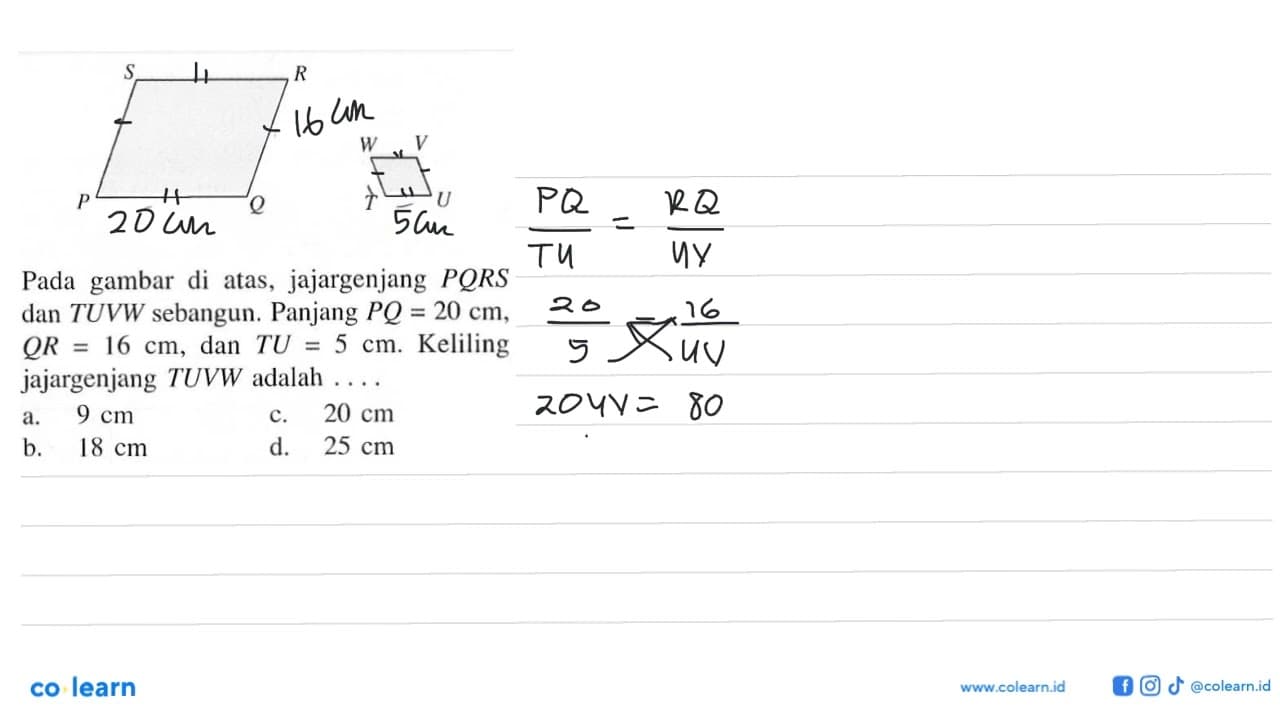 S R
16 cm
W V
P Q T U
20 cm 5 cm
Pada gambar di atas, jajargenjang PQRS
dan TUVW sebangun. Panjang PQ = 20 cm,
QR = 16 cm, dan TU = 5 cm. Keliling
jajargenjang TUVW adalah . . . .
a. 9 cm c. 20 cm
b. 18 cm d. 25 cm
PQ/TU = RQ/UV
20/5 = 16/UV
20UV = 80
co learn
www.colearn.id @colearn.id